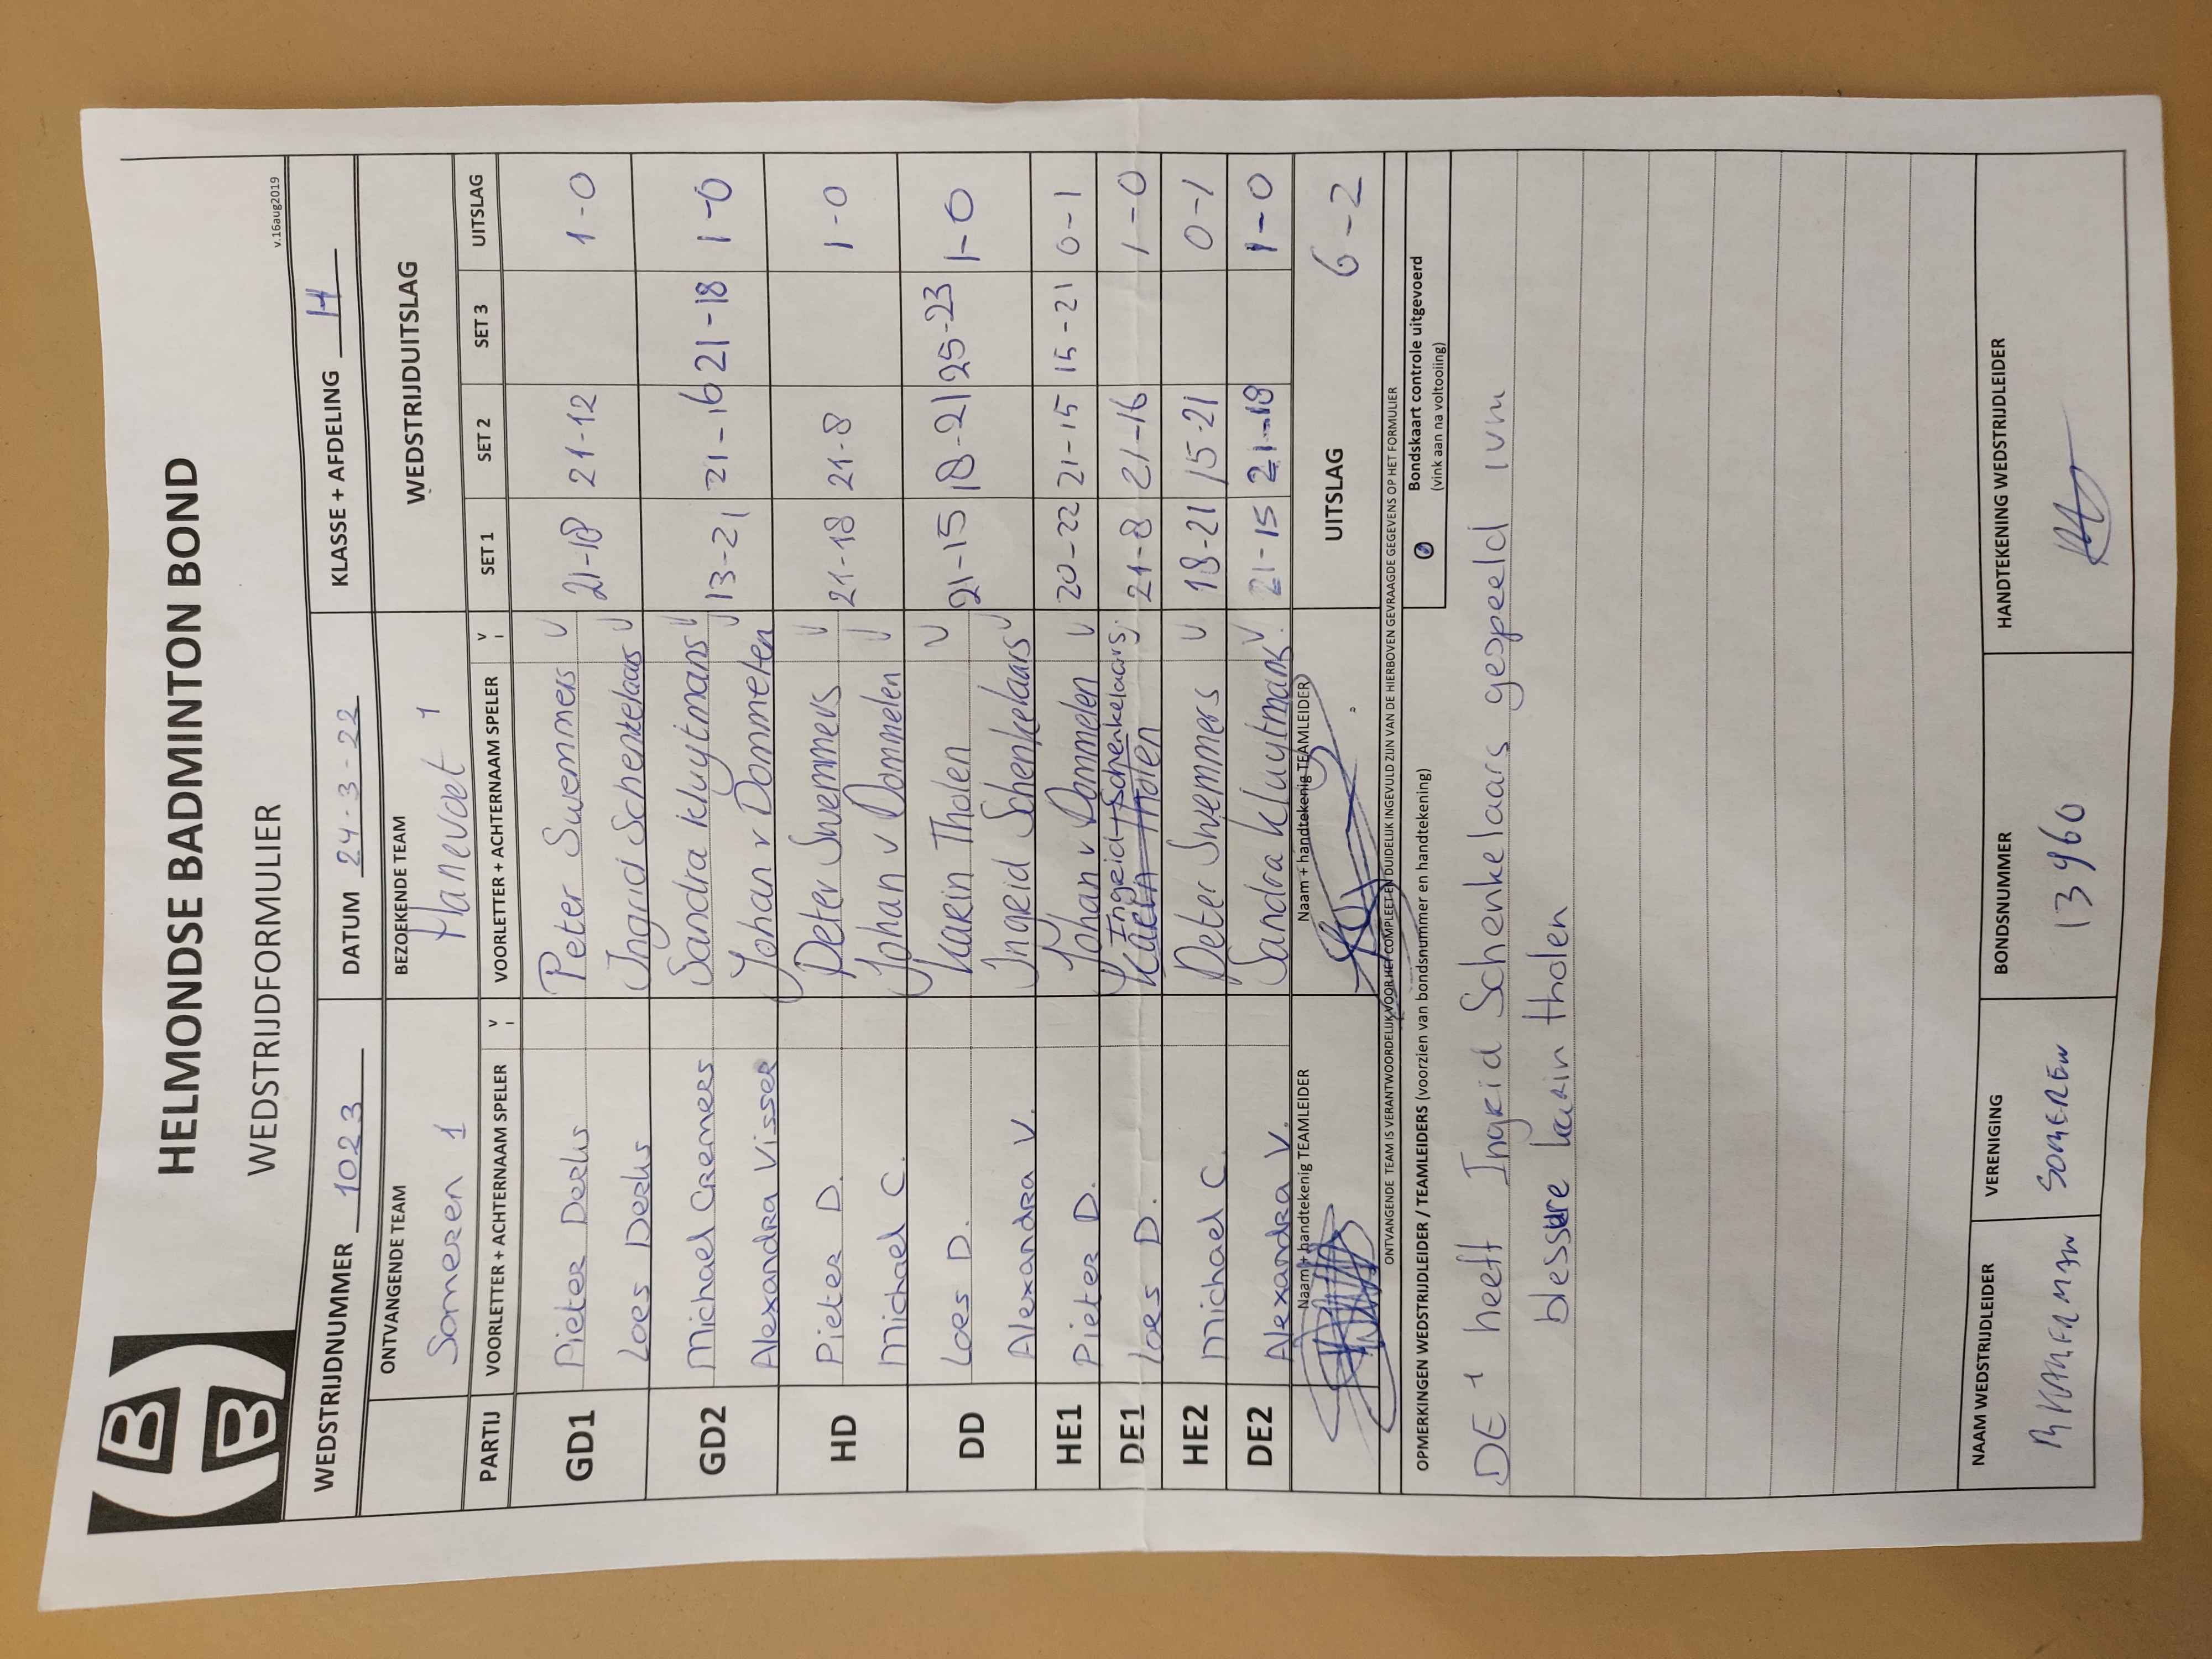 HBB
HELMONDSE BADMINTON BOND
WEDSTRIJDFORMULIER
v.16aug2019
WEDSTRIJDNUMMER 1023 DATUM 24-3-22 KLASSE + AFDELING 1H
ONTVANGENDE TEAM BEZOEKENDE TEAM WEDSTRIJDUITSLAG
Someren 1 Hanevoet 1
PARTIJ VOORLETTER + ACHTERNAAM SPELER V VOORLETTER + ACHTERNAAM SPELER V SET 1 SET 2 SET 3 UITSLAG
GD1 Pieter Derks Peter Swemmers V 21-18 21-12 1-0
Loes Derks Ingrid Schenkelaars V
GD2 Michael Cremers Sandra Kluytmans V 13-21 21-16 21-18 1-0
Alexandra Visser Johan v Dommelen V
HD Pieter D. Peter Swemmers V 21-18 21-8 1-0
Michael C. Johan v Dommelen V
DD Loes D. Karin Tholen V 21-15 18-21 25-23 1-0
Alexandra V. Ingrid Schenkelaars V
HE1 Pieter D. Johan v Dommelen V 20-22 21-15 15-21 0-1
DE1 Loes D. Ingrid Schenkelaars 21-8 21-16 1-0
Karin Tholen
HE2 Michael C. Peter Swemmers V 18-21 15-21 0-1
DE2 Alexandra V. Sandra Kluytmans V 21-15 21-18 1-0
Naam + handtekenig TEAMLEIDER Naam + handtekenig TEAMLEIDER UITSLAG 6-2
ONTVANGENDE TEAM IS VERANTWOORDELIJK VOOR HET COMPLEET EN DUIDELIJK INGEVULD ZIJN VAN DE HIERBOVEN GEVRAAGDE GEGEVENS OP HET FORMULIER
OPMERKINGEN WEDSTRIJDLEIDER / TEAMLEIDERS (voorzien van bondsnummer en handtekening) Bondskaart controle uitgevoerd
(vink aan na voltooiing)
DE 1 heeft Ingrid Schenkelaars gespeeld ivm
blessure karin tholen
NAAM WEDSTRIJDLEIDER VERENIGING BONDSNUMMER HANDTEKENING WEDSTRIJDLEIDER
SOMEREN 13960